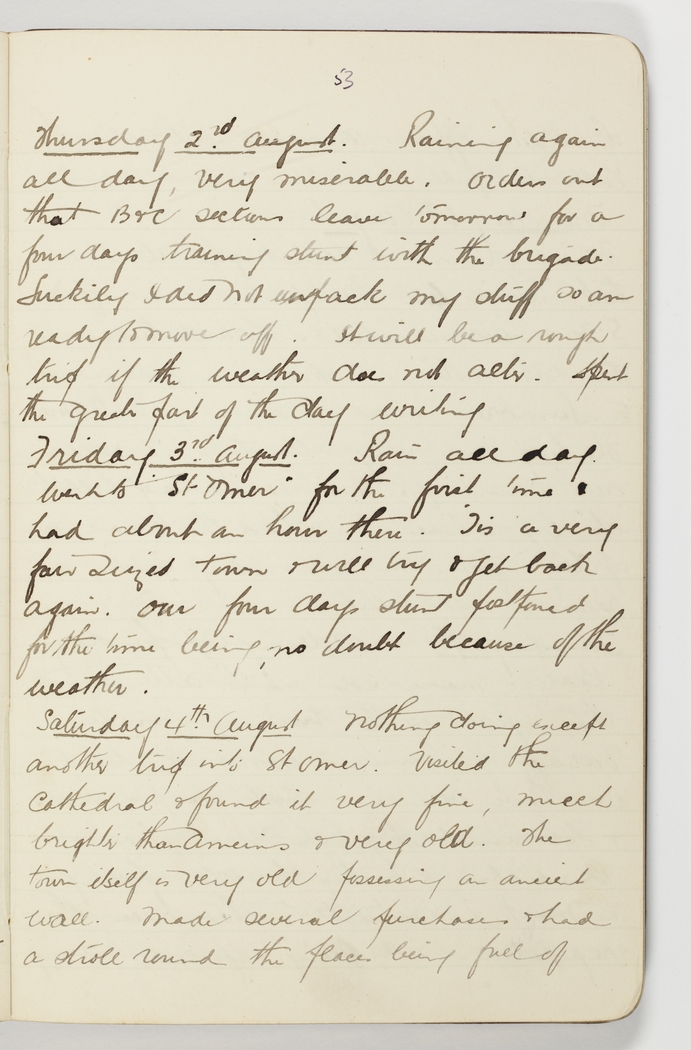 53
Thursday 2nd August. Raining again
all day, very miserable. Orders out
that B & C sections leave tomorrow for a
four days training stunt with the brigade.
Luckily I did not unpack my stuff so am
ready to move off. It will be a rough
trip if the weather does not alter. Spent
the greater part of the day writing
Friday 3rd August. Rain all day.
Went to "St Omer" for the first time &
had about an hour there. 'Tis a very
fair sized town & will try & get back
again. Our four days stunt postponed
for the time being, no doubt because of the
weather.
Saturday 4th August Nothing doing except
another trip into St Omer. Visited the
Cathedral & found it very fine, much
brighter than Ameins & very old. The
town itself is very old possessing an ancient
wall. Made several purchases & had
a stroll round the places being full of